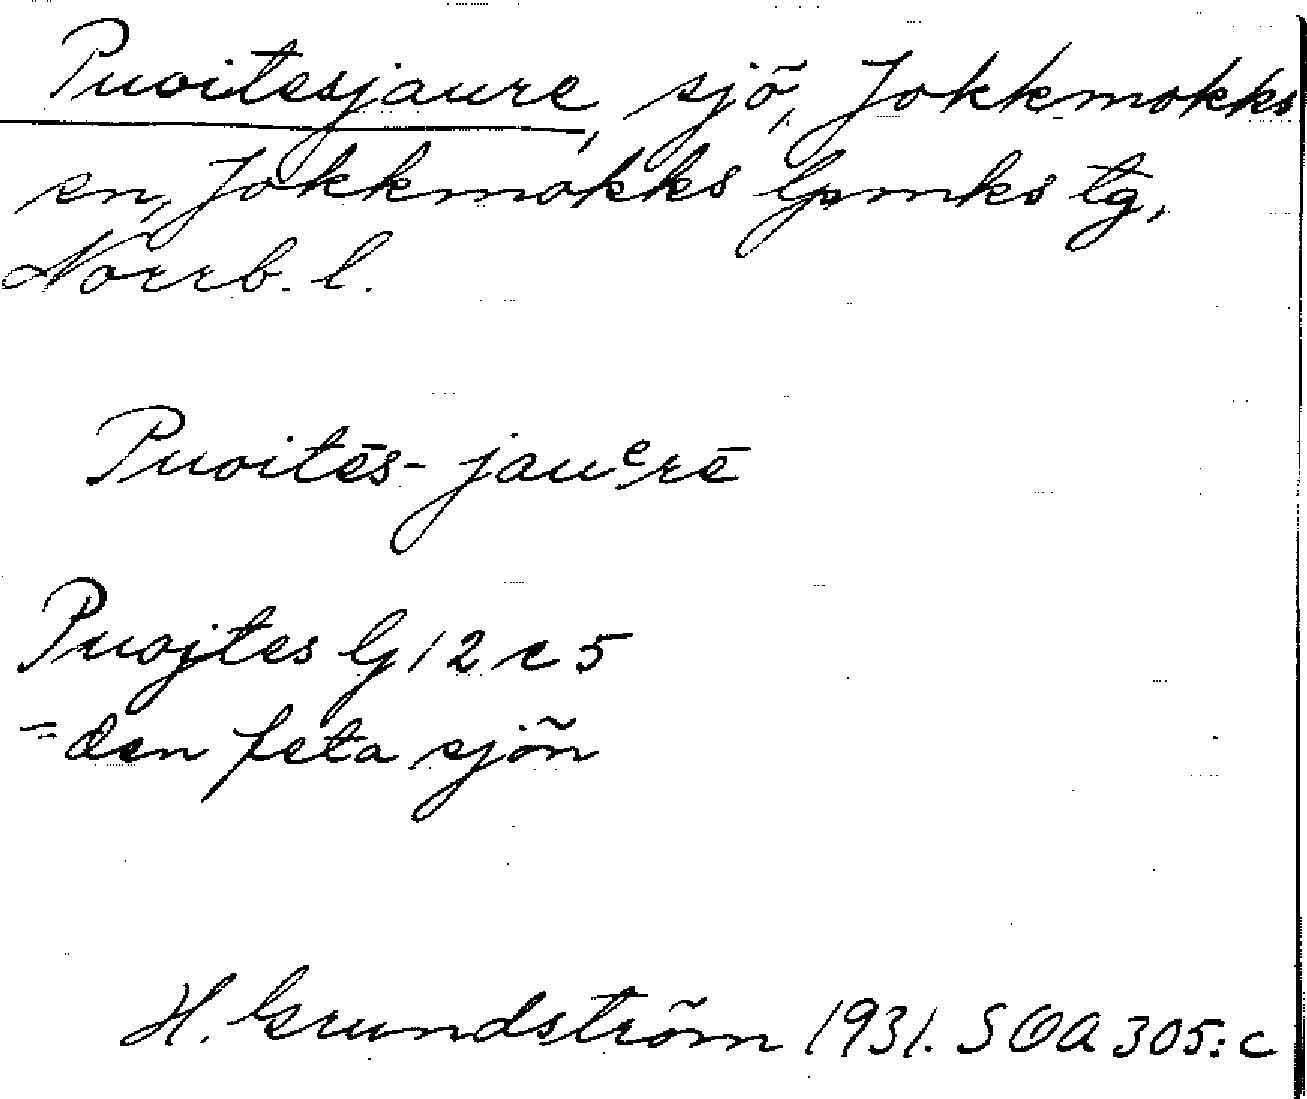 Puoitesjaure, sjö, Jokkmokks
sn, Jokkmokks lpmks tg,
Norrb. l.
Puoitēs- jauᵉrē
Puojtes G 12 c 5
= den feta sjön
H. Grundström 1931. SOA 305:c